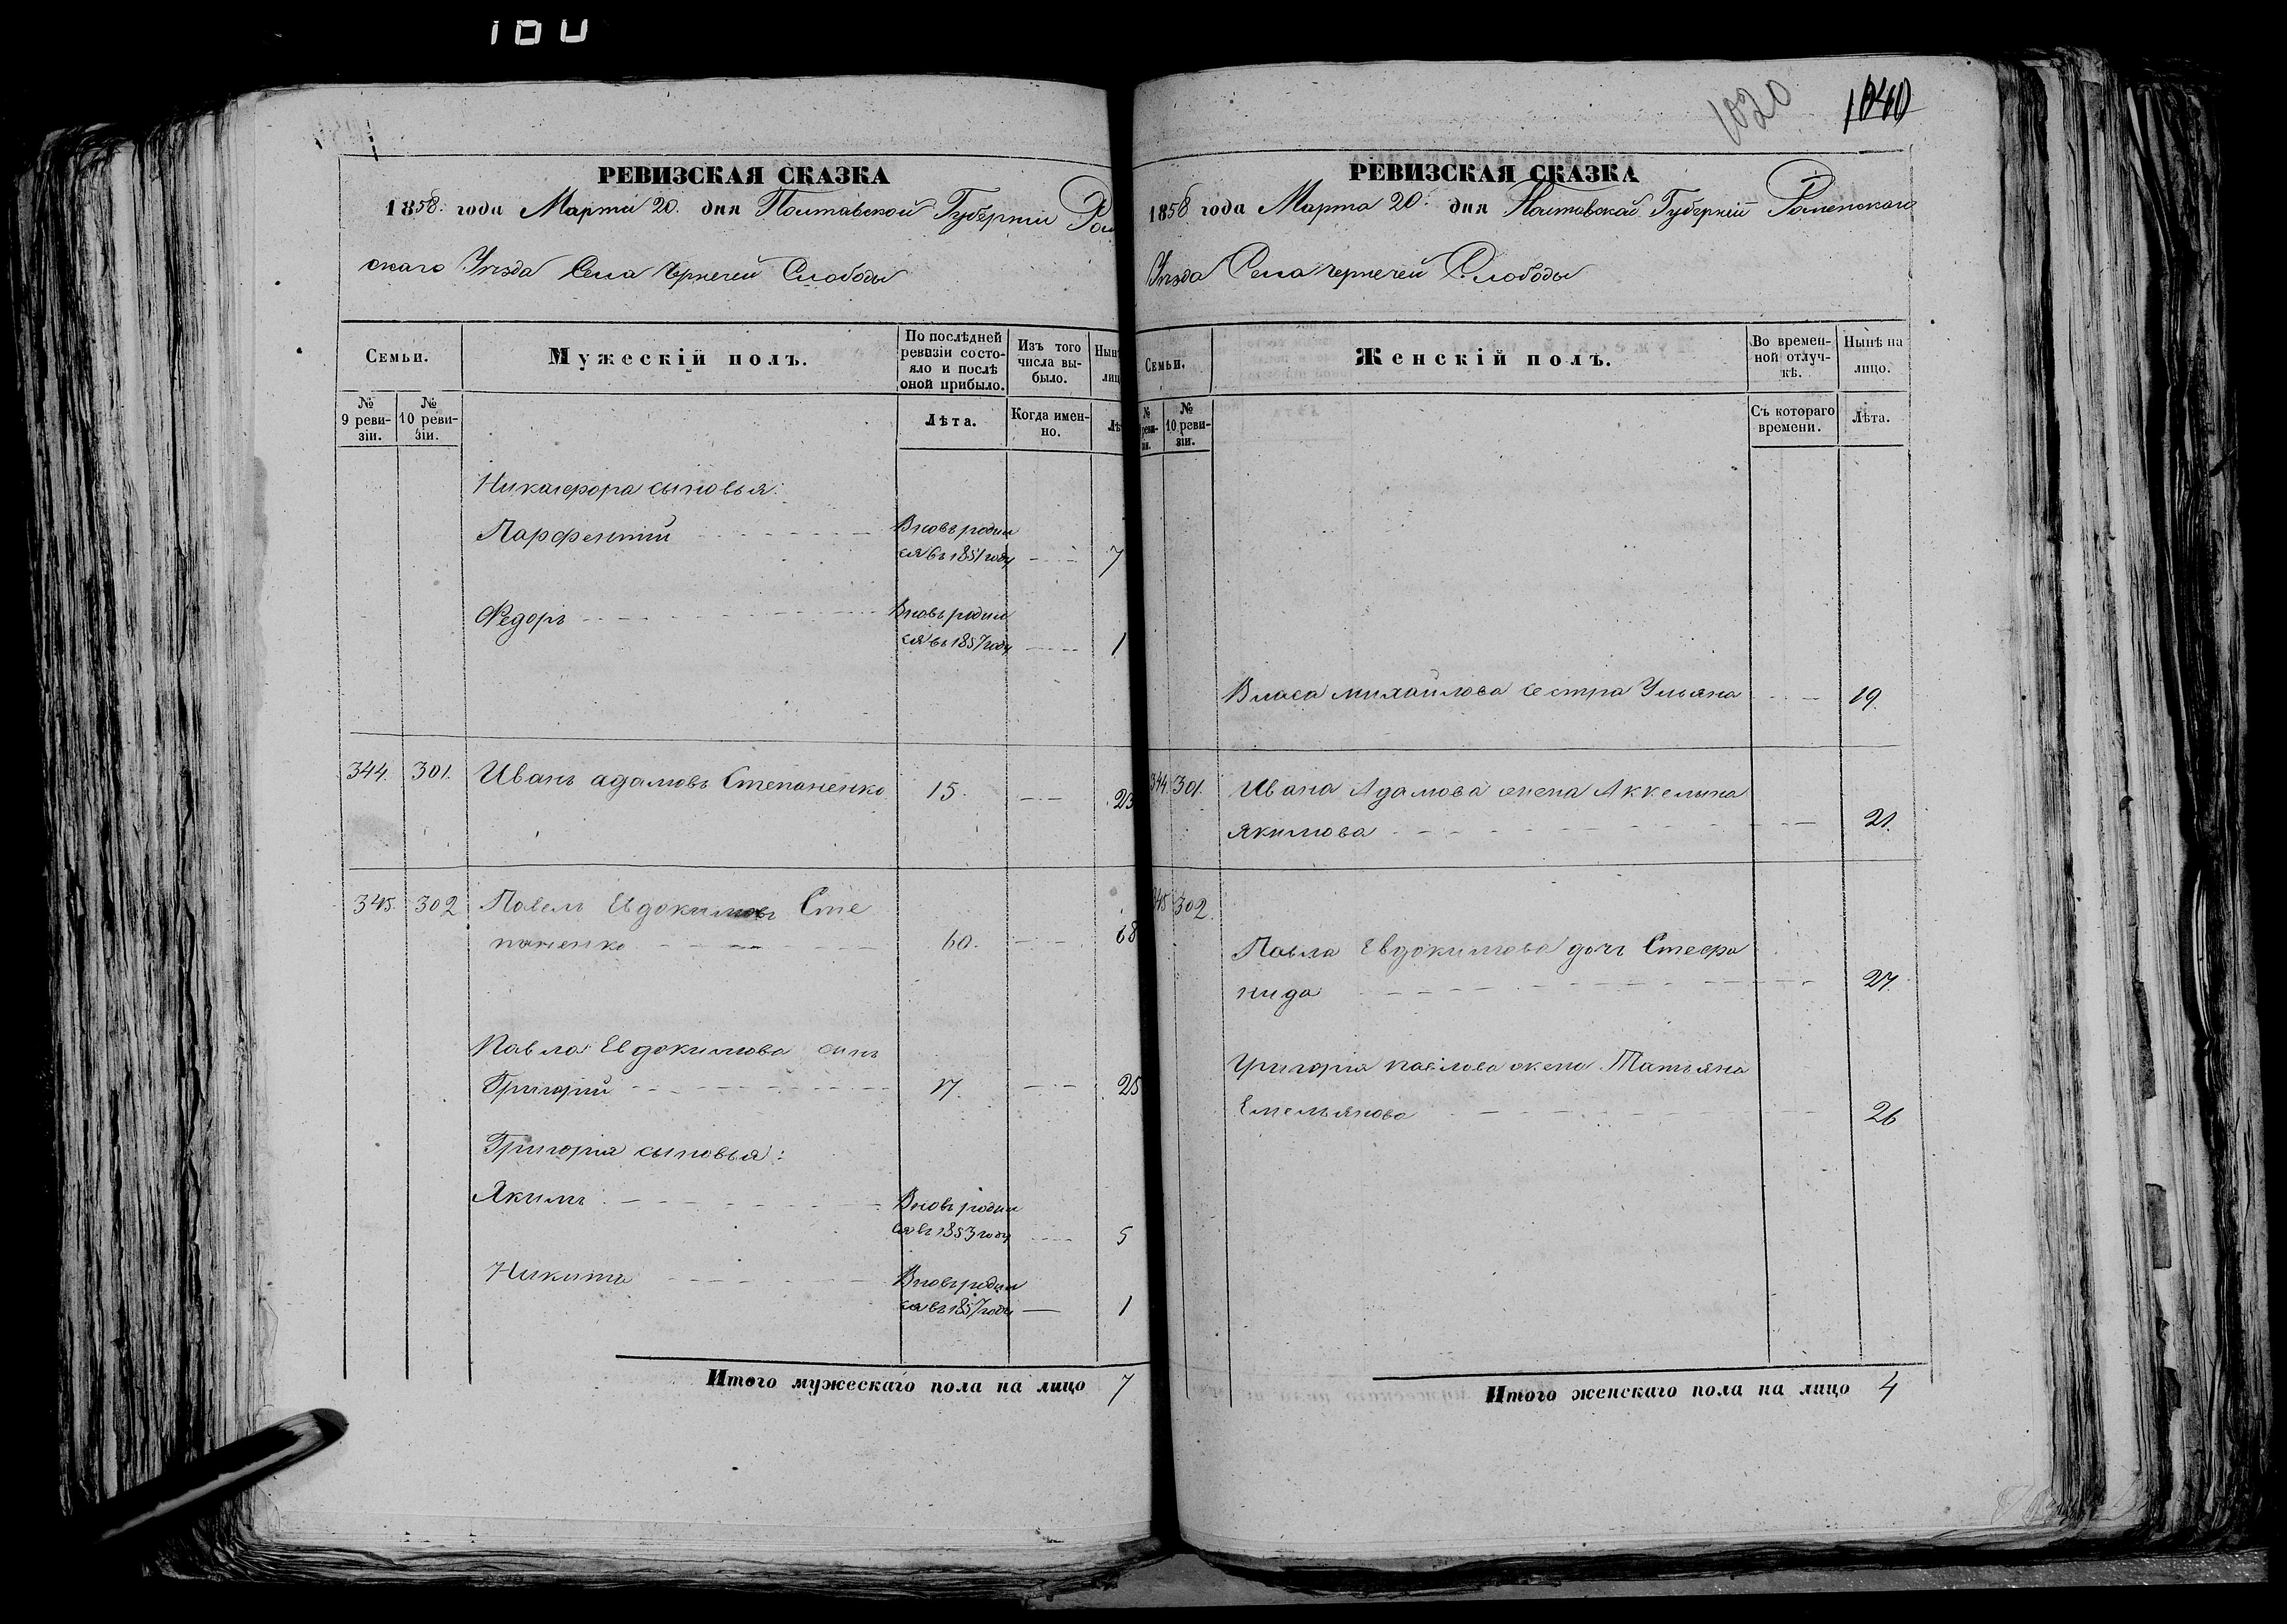 180
РЕВИЗСКАЯ СКАЗКА
1858. года Марта 20. дня Полтавской Губерніи Ром
скаго Уѣзда Села Чернечей Слободы
Семьи.
Мужескій полъ.
По послѣдней ревизіи состояло и послѣ оной прибыло.
Изъ того числа выбыло.
Нынѣ лиц
№ 9 ревизіи.
№ 10 ревизіи.
Лѣта.
Когда именно.
Лѣ
Никифора сыновья:
Парфентий Вновь родил
ся въ 1851 году 7
Федоръ Вновь родил
ся въ 1857 году 1
344. 301. Иванъ Адамовъ Степаненко 15. 23
345. 302 Павелъ Евдокимовъ Сте
паненко 60. 68
Павла Евдокимова сынъ
Григорий 17. 25
Григорія сыновья:
Якимъ Вновь родил
ся въ 1853 году 5
Никита Вновь родил
ся въ 1857 году 1
Итого мужескаго пола на лицо 7
1020 1040
РЕВИЗСКАЯ СКАЗКА
1858 года Марта 20. дня Полтавской Губерніи Роменскаго
Уѣзда Села Чернечей Слободы
Семьи.
Женскій полъ.
Во временной отлучкѣ.
Нынѣ на лицо.
№ реви- зіи.
№ 10 ревизіи.
Съ котораго времени.
Лѣта.
Власа Михайлова сестра Ульяна 19.
344. 301. Ивана Адамова жена Аккелина
Якимова 21.
345 302.
Павла Евдокимова дочь Стефа
нида 27.
Григорія Павлова жена Татьяна
Емельянова 26
Итого женскаго пола на лицо 4